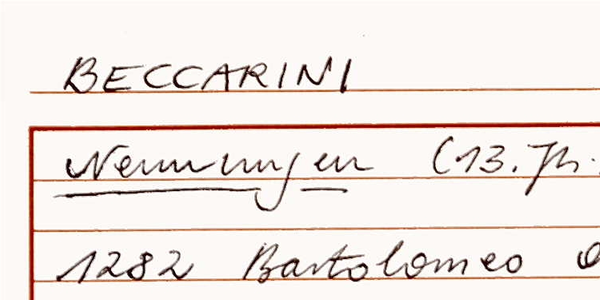 BECCARINI
Nennungen (13. Jh.
1282 Bartolomeo